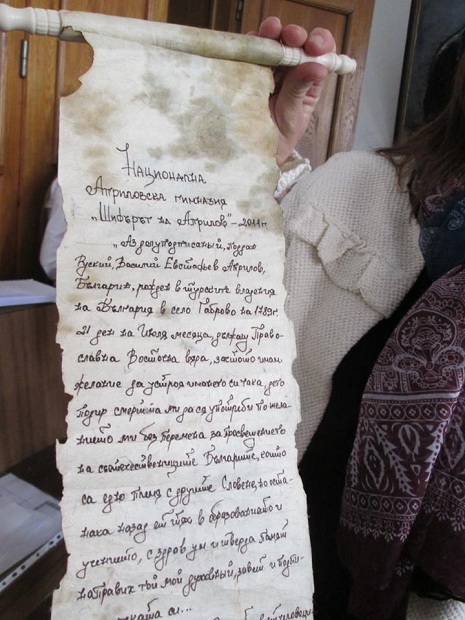 Национална
Априловска гимназия
"Шифърът на Априлов" - 2011г.
"Аз долуподписаный, поддан
Руский, Василий Евстатьев Априлов,
Българин, роден в турските владения
на България в село Габрово на 1789г.
21 ден на Июля месяца, държащ Право-
славна Восточна вяра, защото имам
желание да устроя имането си така, дето
подир смертта ми да са употреби по жела-
нието ми без перемена за просвещението
на соотечествениците Българите, които
са едно племя с другите Словене, но оста-
наха назад от тях в образованието и
учението, с здрав ум и твърда памят
направих той мой духовный завет и
си...